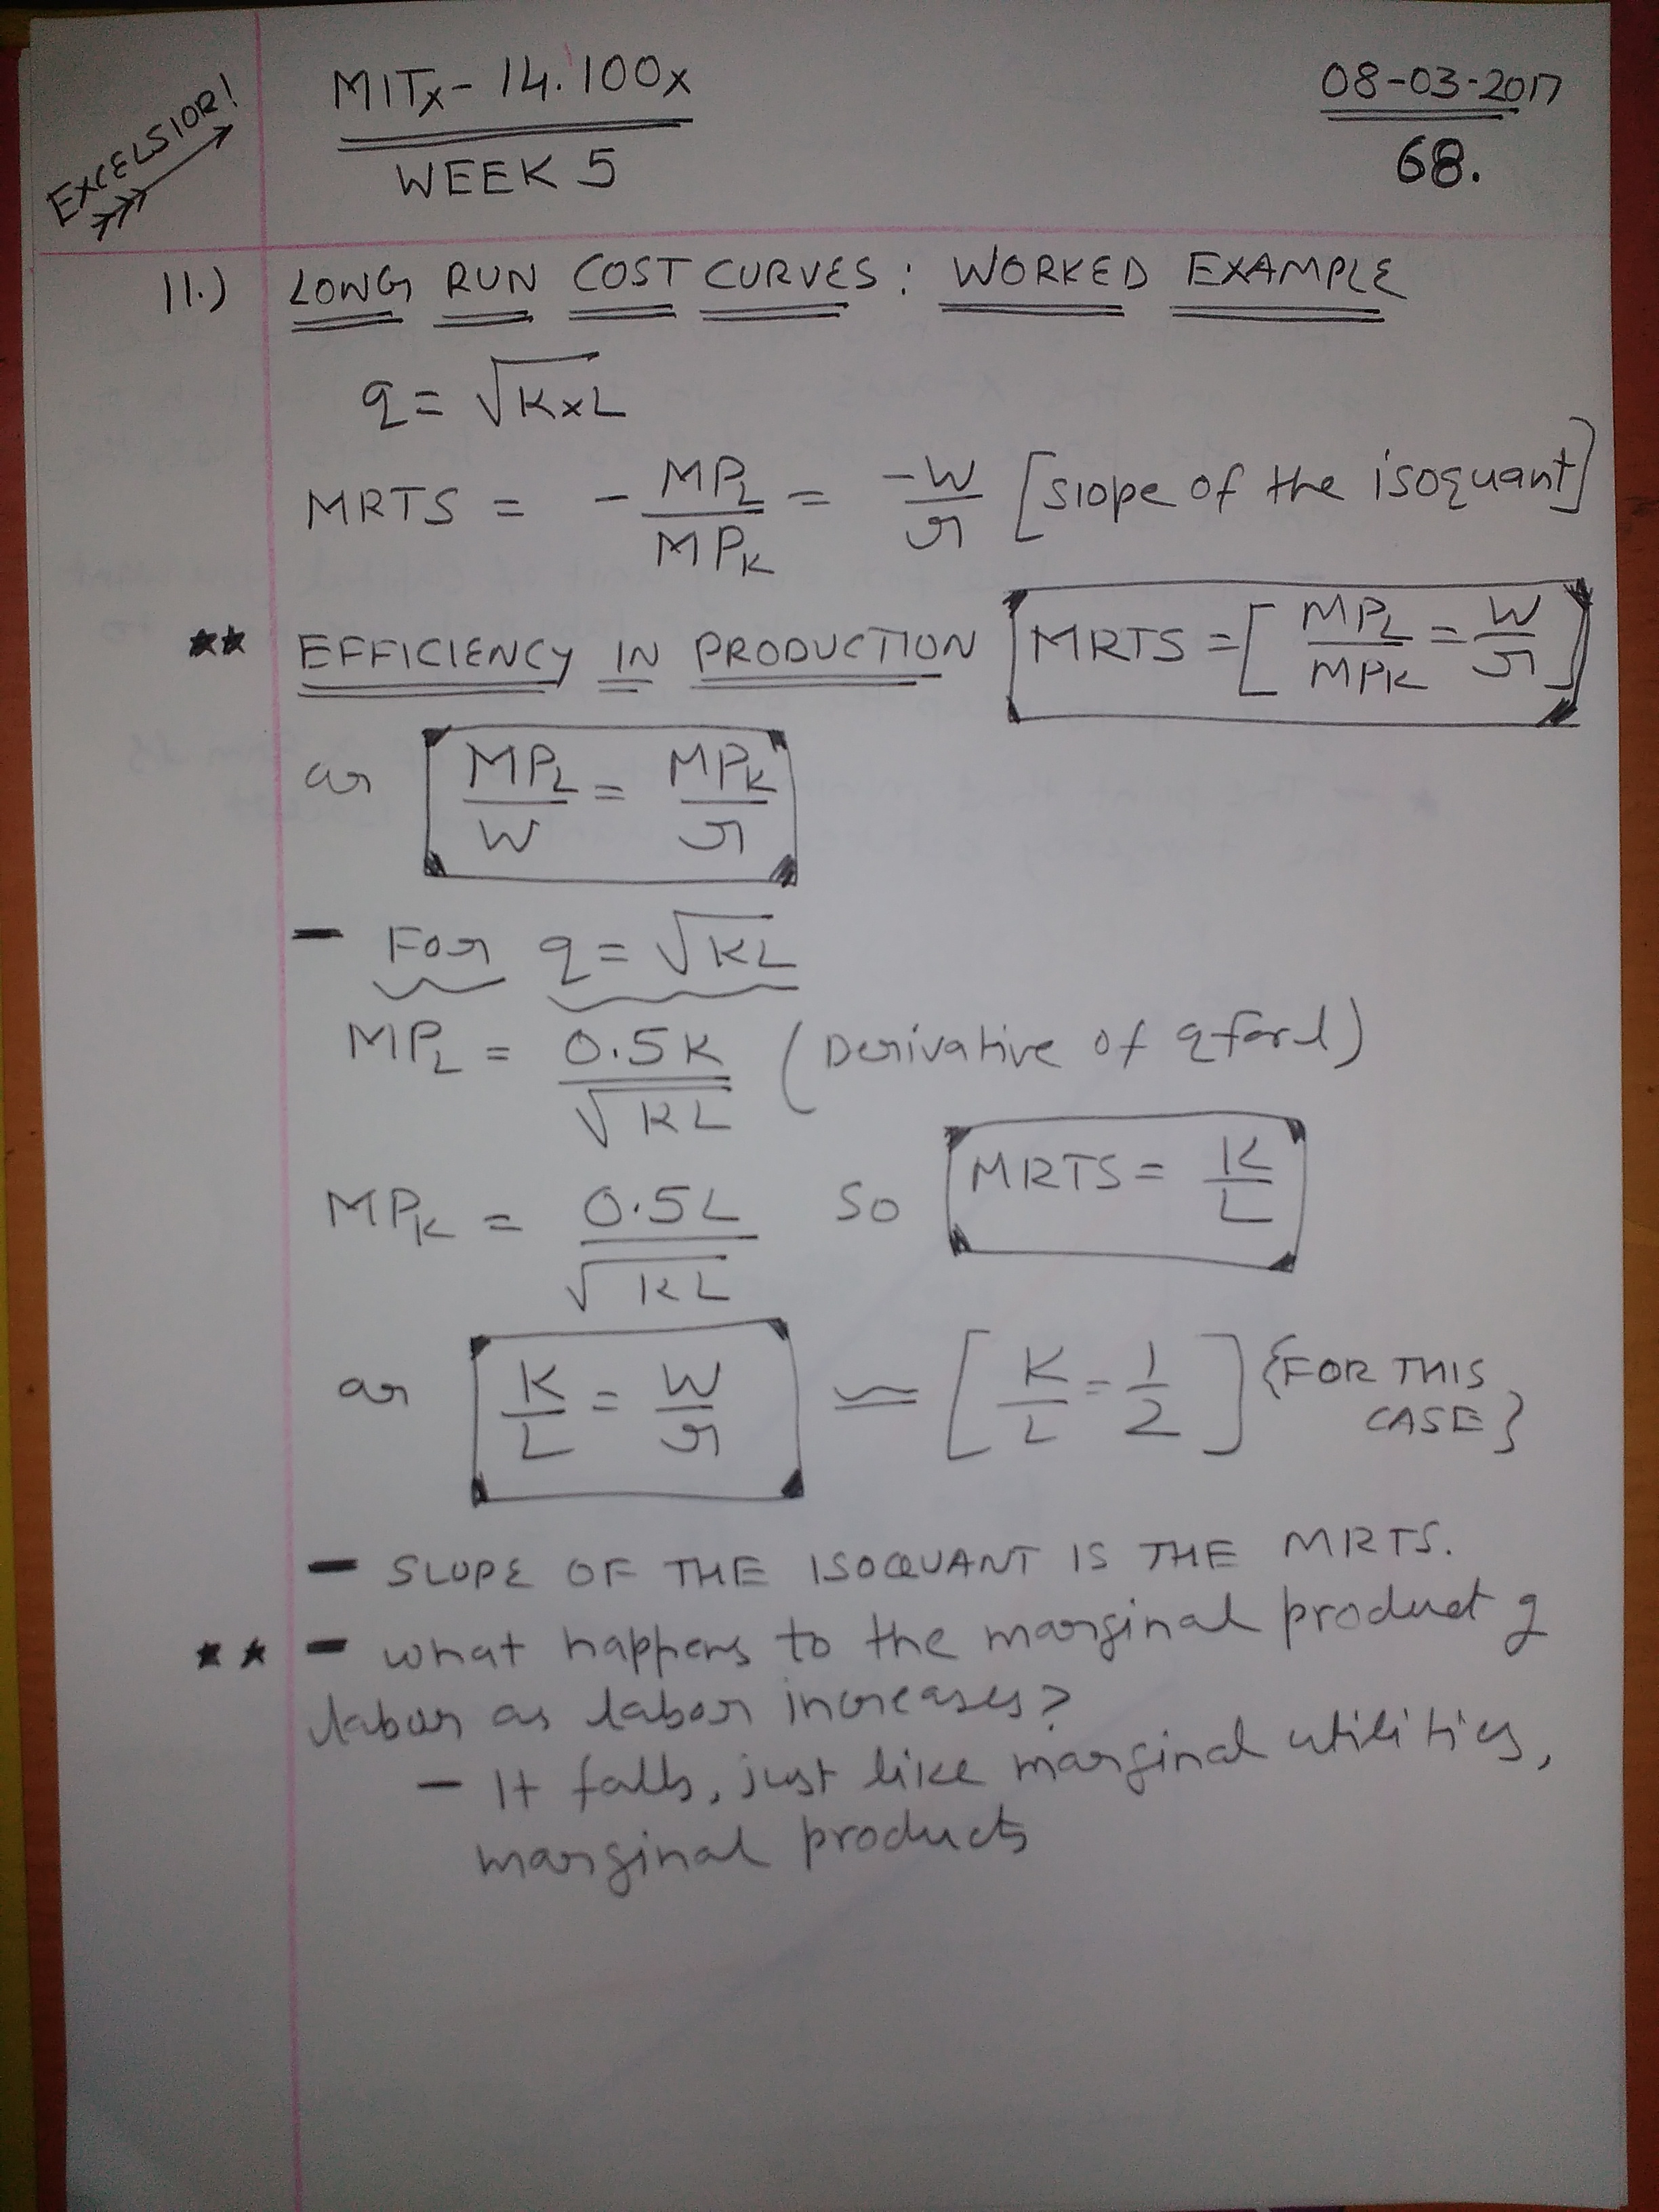 EXCELSIOR!
MITx - 14.100x
WEEK 5
08-03-2017
68.
11.) LONG RUN COST CURVES: WORKED EXAMPLE
q = √K×L
MRTS = - MPL/MPK = -W/r [slope of the isoquant]
★★ EFFICIENCY IN PRODUCTION MRTS = [MPL/MPK = W/r]
or MPL/W = MPK/r
- For q = √KL
MPL = 0.5K/√KL (Derivative of q for l)
MPK = 0.5L/√KL so MRTS = K/L
or K/L = W/r ≃ [K/L = 1/2] {FOR THIS CASE}
- SLOPE OF THE ISOQUANT IS THE MRTS.
★★ - what happens to the marginal product of
labor as labor increases?
- It falls, just like marginal utilities,
marginal products